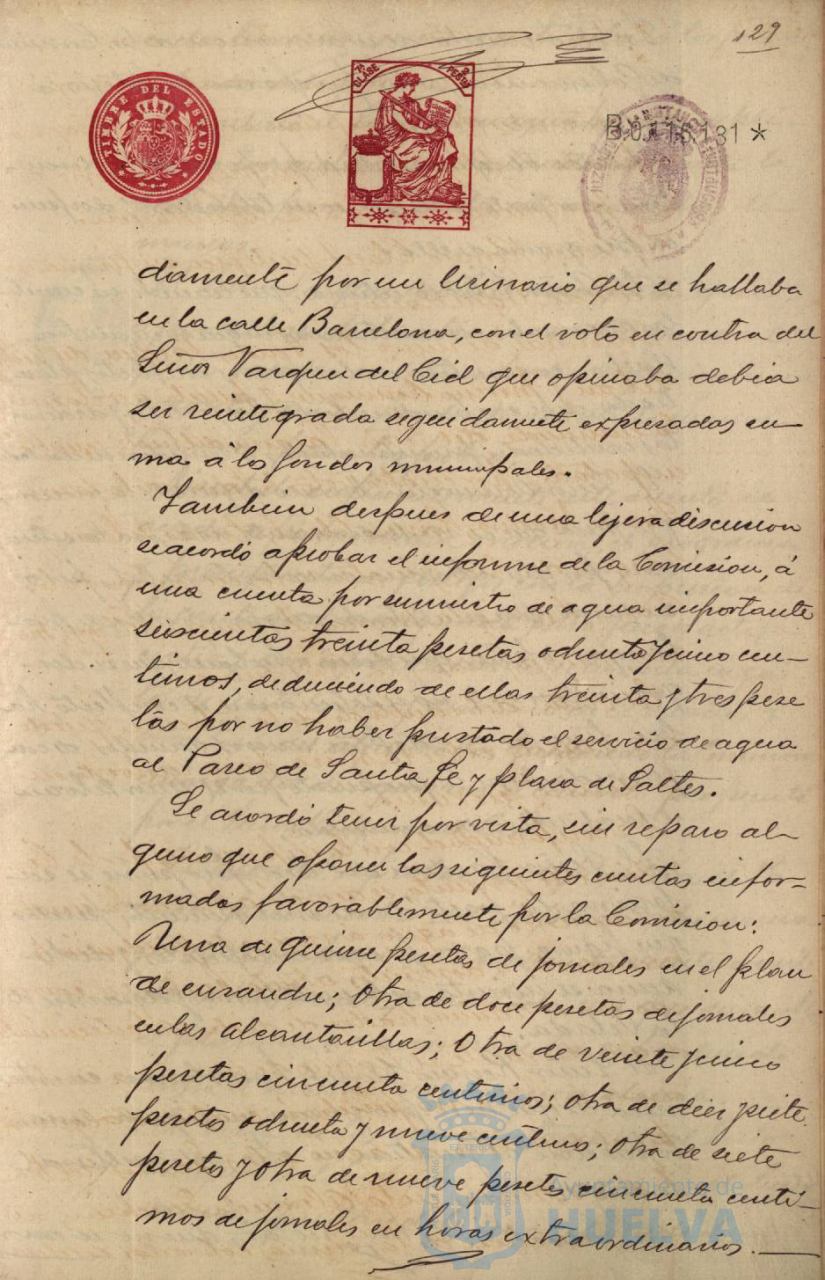 129
TIMBRE DEL ESTADO
7ª CLASE
PESETAS
B.0.116.131 *
diamente por un Urinario que se hallaba
en la calle Barcelona, con el voto en contra del
Señor Vazquez del Cid que opinaba debia
ser reintegrada seguidamente expresadas su-
ma á los fondos municipales.
Tambien despues de una lijera discusion
se acordó aprobar el informe de la Comision, á
una cuenta por suministro de agua importante
seiscientas treinta pesetas ochenta y cinco cen-
timos, deduciendo de ellas treinta y tres pese
tas por no haber prestado el servicio de agua
al Paseo de Santa Fe y plaza de Saltes.
Se acordó tener por vista, sin reparo al-
guno que oponer las siguientes cuentas infor-
madas favorablemente por la Comision:
Una de quince pesetas de jornales en el plan
de ensanche; Otra de doce pesetas de jornales
en las alcantarillas; Otra de veinte y cinco
pesetas cincuenta centimos; otra de diez y siete
pesetas ochenta y nueve centimos; otra de siete
pesetas y otra de nueve pesetas cincuenta centi-
mos de jornales en horas extraordinarios.
Ayuntamiento de
HUELVA